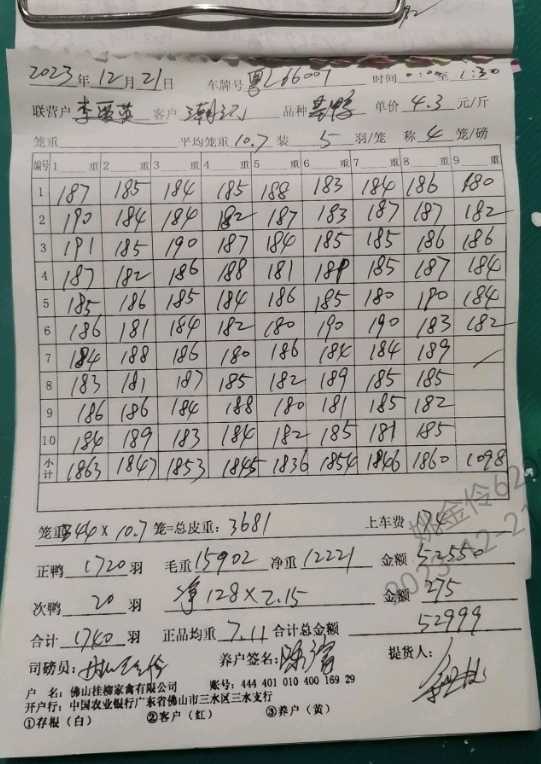 2023年 12月 21日 车牌号 粤L66007 时间 0:00至 1:30
联营户 李爱英 客户 潮记 品种 单价 4.3 元/斤
笼重 平均笼重 10.7 装 5 羽/笼 称 4 笼/磅
编号 1 重 2 重 3 重 4 重 5 重 6 重 7 重 8 重 9 重
1 187 185 184 185 188 183 184 186 180
2 190 184 184 182 187 183 187 187 182
3 191 185 190 187 184 185 185 186 186
4 187 182 186 188 181 184 185 187 184
5 185 186 185 184 186 185 180 180 184
6 186 181 184 182 180 190 190 183 182
7 184 188 186 180 186 184 184 189 /
8 183 181 187 185 182 189 185 185
9 186 186 184 188 180 181 185 182
10 184 189 183 184 182 185 181 185
小计 1863 1847 1853 1845 1836 1854 1846 1860 1098
笼重344×10.7 笼=总皮重: 3681 上车费 174
正鸭 1720 羽 毛重 15902 净重 12221 金额 52550
次鸭 20 羽 净128×2.15 金额 275
合计 1740 羽 正品均重 7.11 合计总金额 52999
司磅员: 养户签名: 提货人:
户 名: 佛山挂柳家禽有限公司 账号: 444 401 010 400 169 29
开户行: 中国农业银行广东省佛山市三水区三水支行
①存根(白) ②客户(红) ③养户(黄)